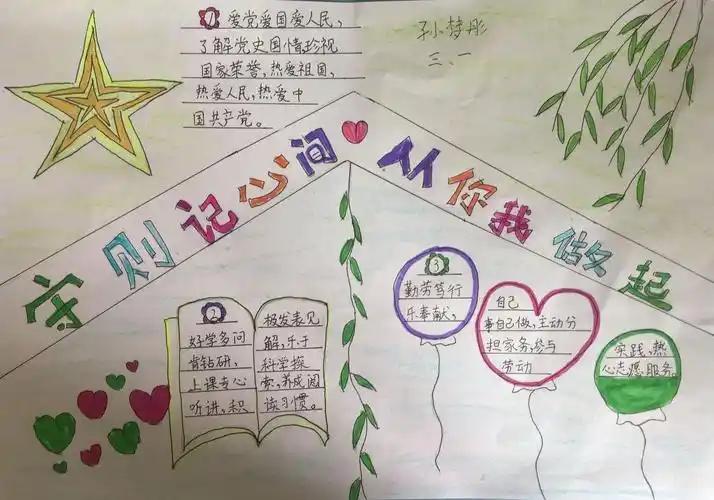 1 爱党爱国爱人民,
了解党史国情珍视
国家荣誉,热爱祖国,
热爱人民,热爱中
国共产党。
孙梦彤
三、一
守则记心间 从你我做起
2
好学多问
肯钻研,
上课专心
听讲,积
极发表见
解,乐于
科学探
索,养成阅
读习惯。
3
勤劳笃行
乐奉献,
自己
事自己做,主动分
担家务,参与
劳动
实践,热
心志愿服务